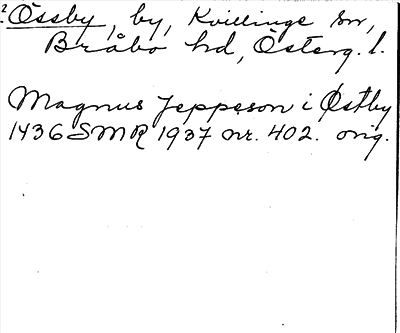 2 Össby, by, Kvillinge sn,
Bråbo hd, Österg. l.
Magnus Jeppeson i Østby
1436 SMR 1937 nr. 402. orig.